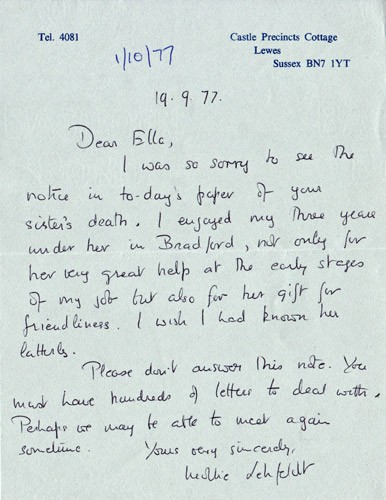 Tel. 4081
Castle Precincts Cottage
Lewes
Sussex BN7 1YT
1/10/77
19.9.77.
Dear Ella,
I was so sorry to see the
notice in to-day's paper of your
sister's death. I enjoyed my three years
under her in Bradford, not only for
her very great help at the early stages
of my job but also for her gift for
friendliness. I wish I had known her
latterly.
Please don't answer this note. You
must have hundreds of letters to deal with.
Perhaps we may be able to meet again
sometime.
Yours very sincerely,
Mollie Lehfeldt